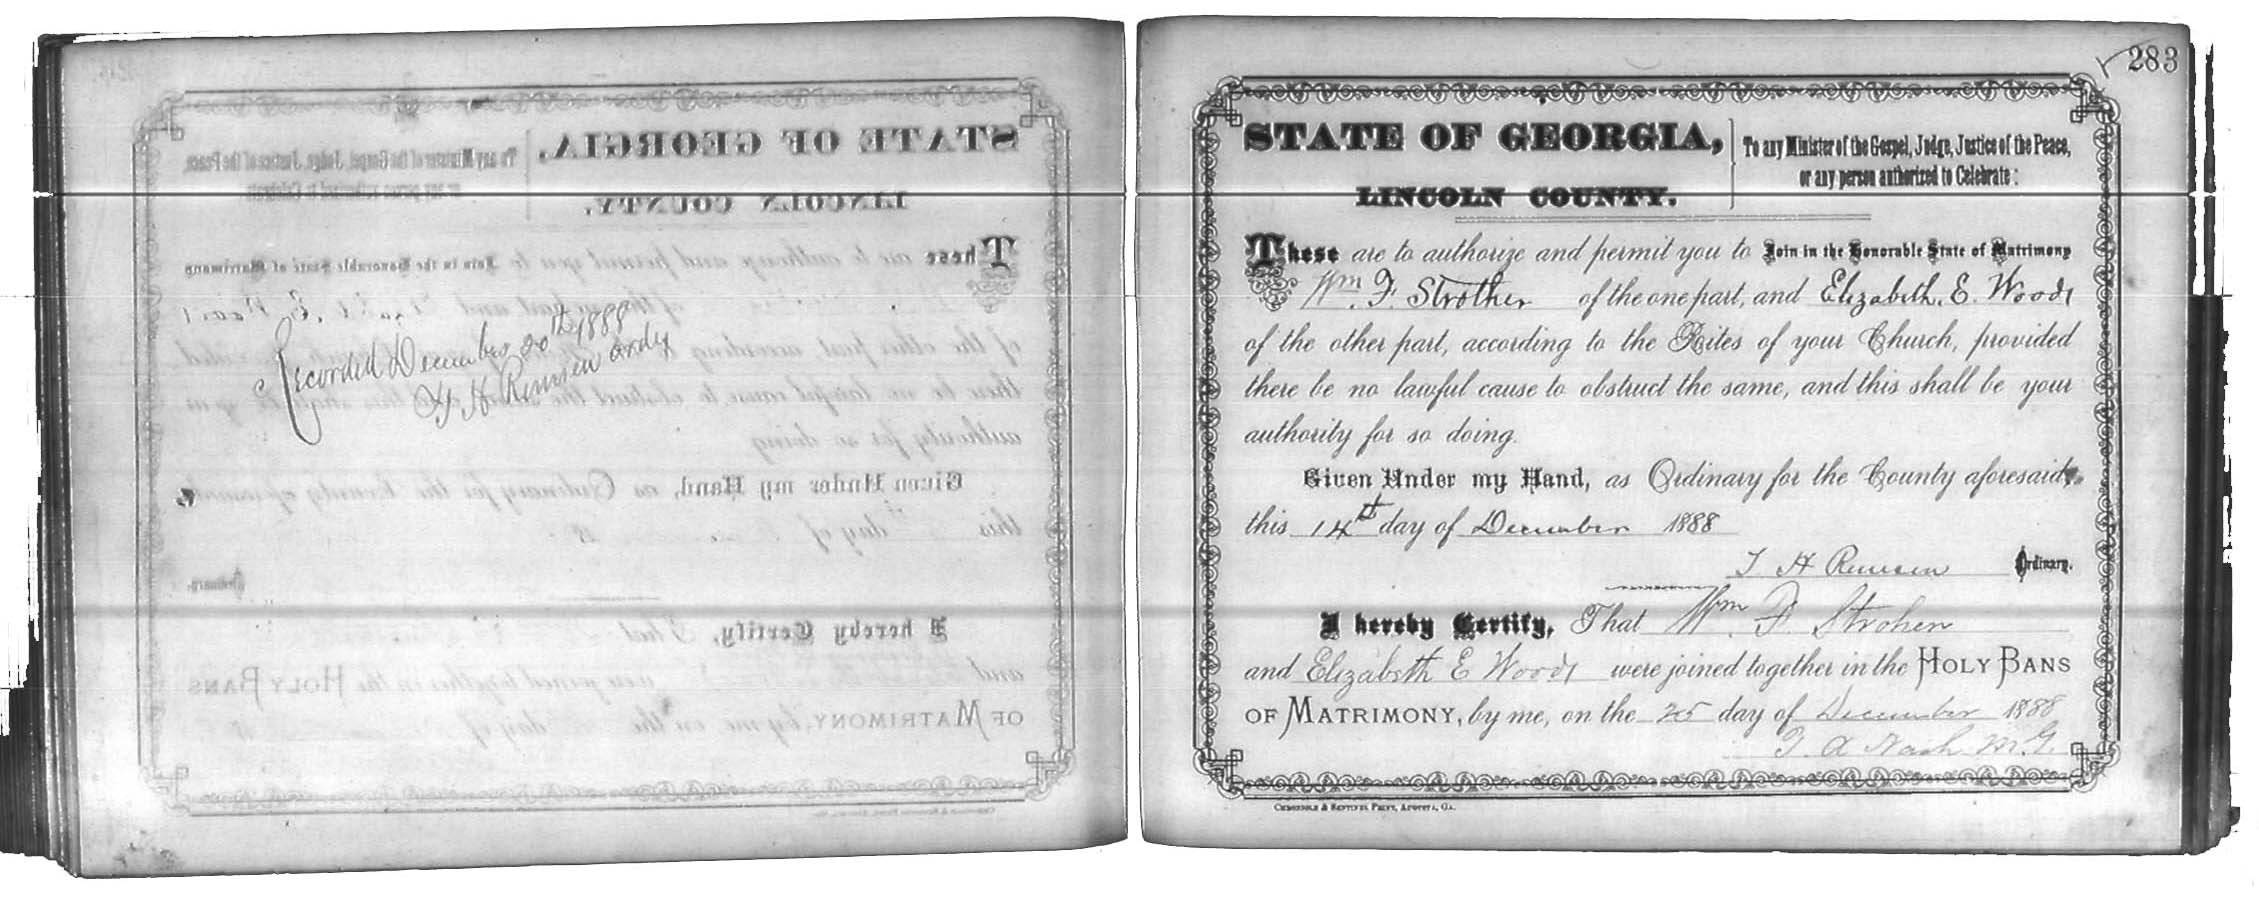 Recorded December 20th 1888
T H Remsen Ordy
283
STATE OF GEORGIA,
LINCOLN COUNTY.
To any Minister of the Gospel, Judge, Justice of the Peace,
or any person authorized to Celebrate:
These are to authorize and permit you to Join in the Honorable State of Matrimony
Wm. F. Strother of the one part, and Elizabeth. E. Woods
of the other part, according to the Rites of your Church, provided
there be no lawful cause to obstruct the same, and this shall be your
authority for so doing.
Given Under my Hand, as Ordinary for the County aforesaid,
this 14th day of December 1888
T H Remsen Ordinary.
I hereby Certify, That Wm F. Strother
and Elizabeth E Woods were joined together in the HOLY BANS
OF MATRIMONY, by me, on the 25 day of December 1888
T A Nash M.G.
CHRONICLE & SENTINEL PRINT, AUGUSTA, GA.